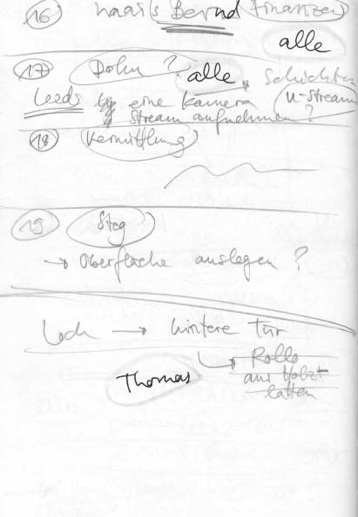 16 Bernd Finanzen
alle
17 Doku ? alle Schichten
Leeds eine Kamera U-Stream
Stream aufnehmen ?
18 Vermittlung
19 Steg
→ Oberfläche auslegen ?
Loch → hintere Tür
↳ Rollo
Thomas aus Holz-
latten